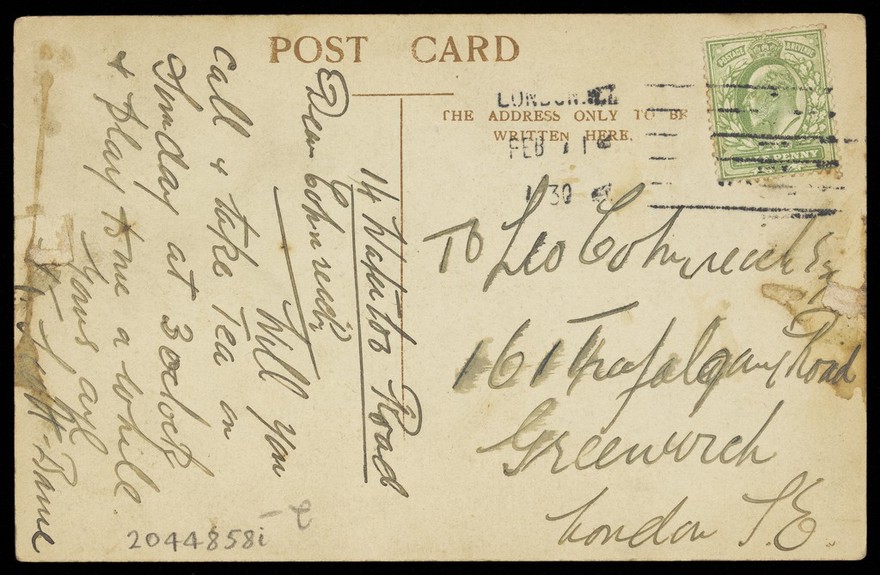 POST CARD
THE ADDRESS ONLY TO BE
WRITTEN HERE.
LONDON
FEB 7 1
1 30
POSTAGE REVENUE
PENNY
14 Road
Dear
Will You
call & take Tea on
Sunday at 3 oclock
& play to me a while.
Yours aye
To Leo Esq
161 Trafalgar Road
Greenwich
London S.E.
20448581i